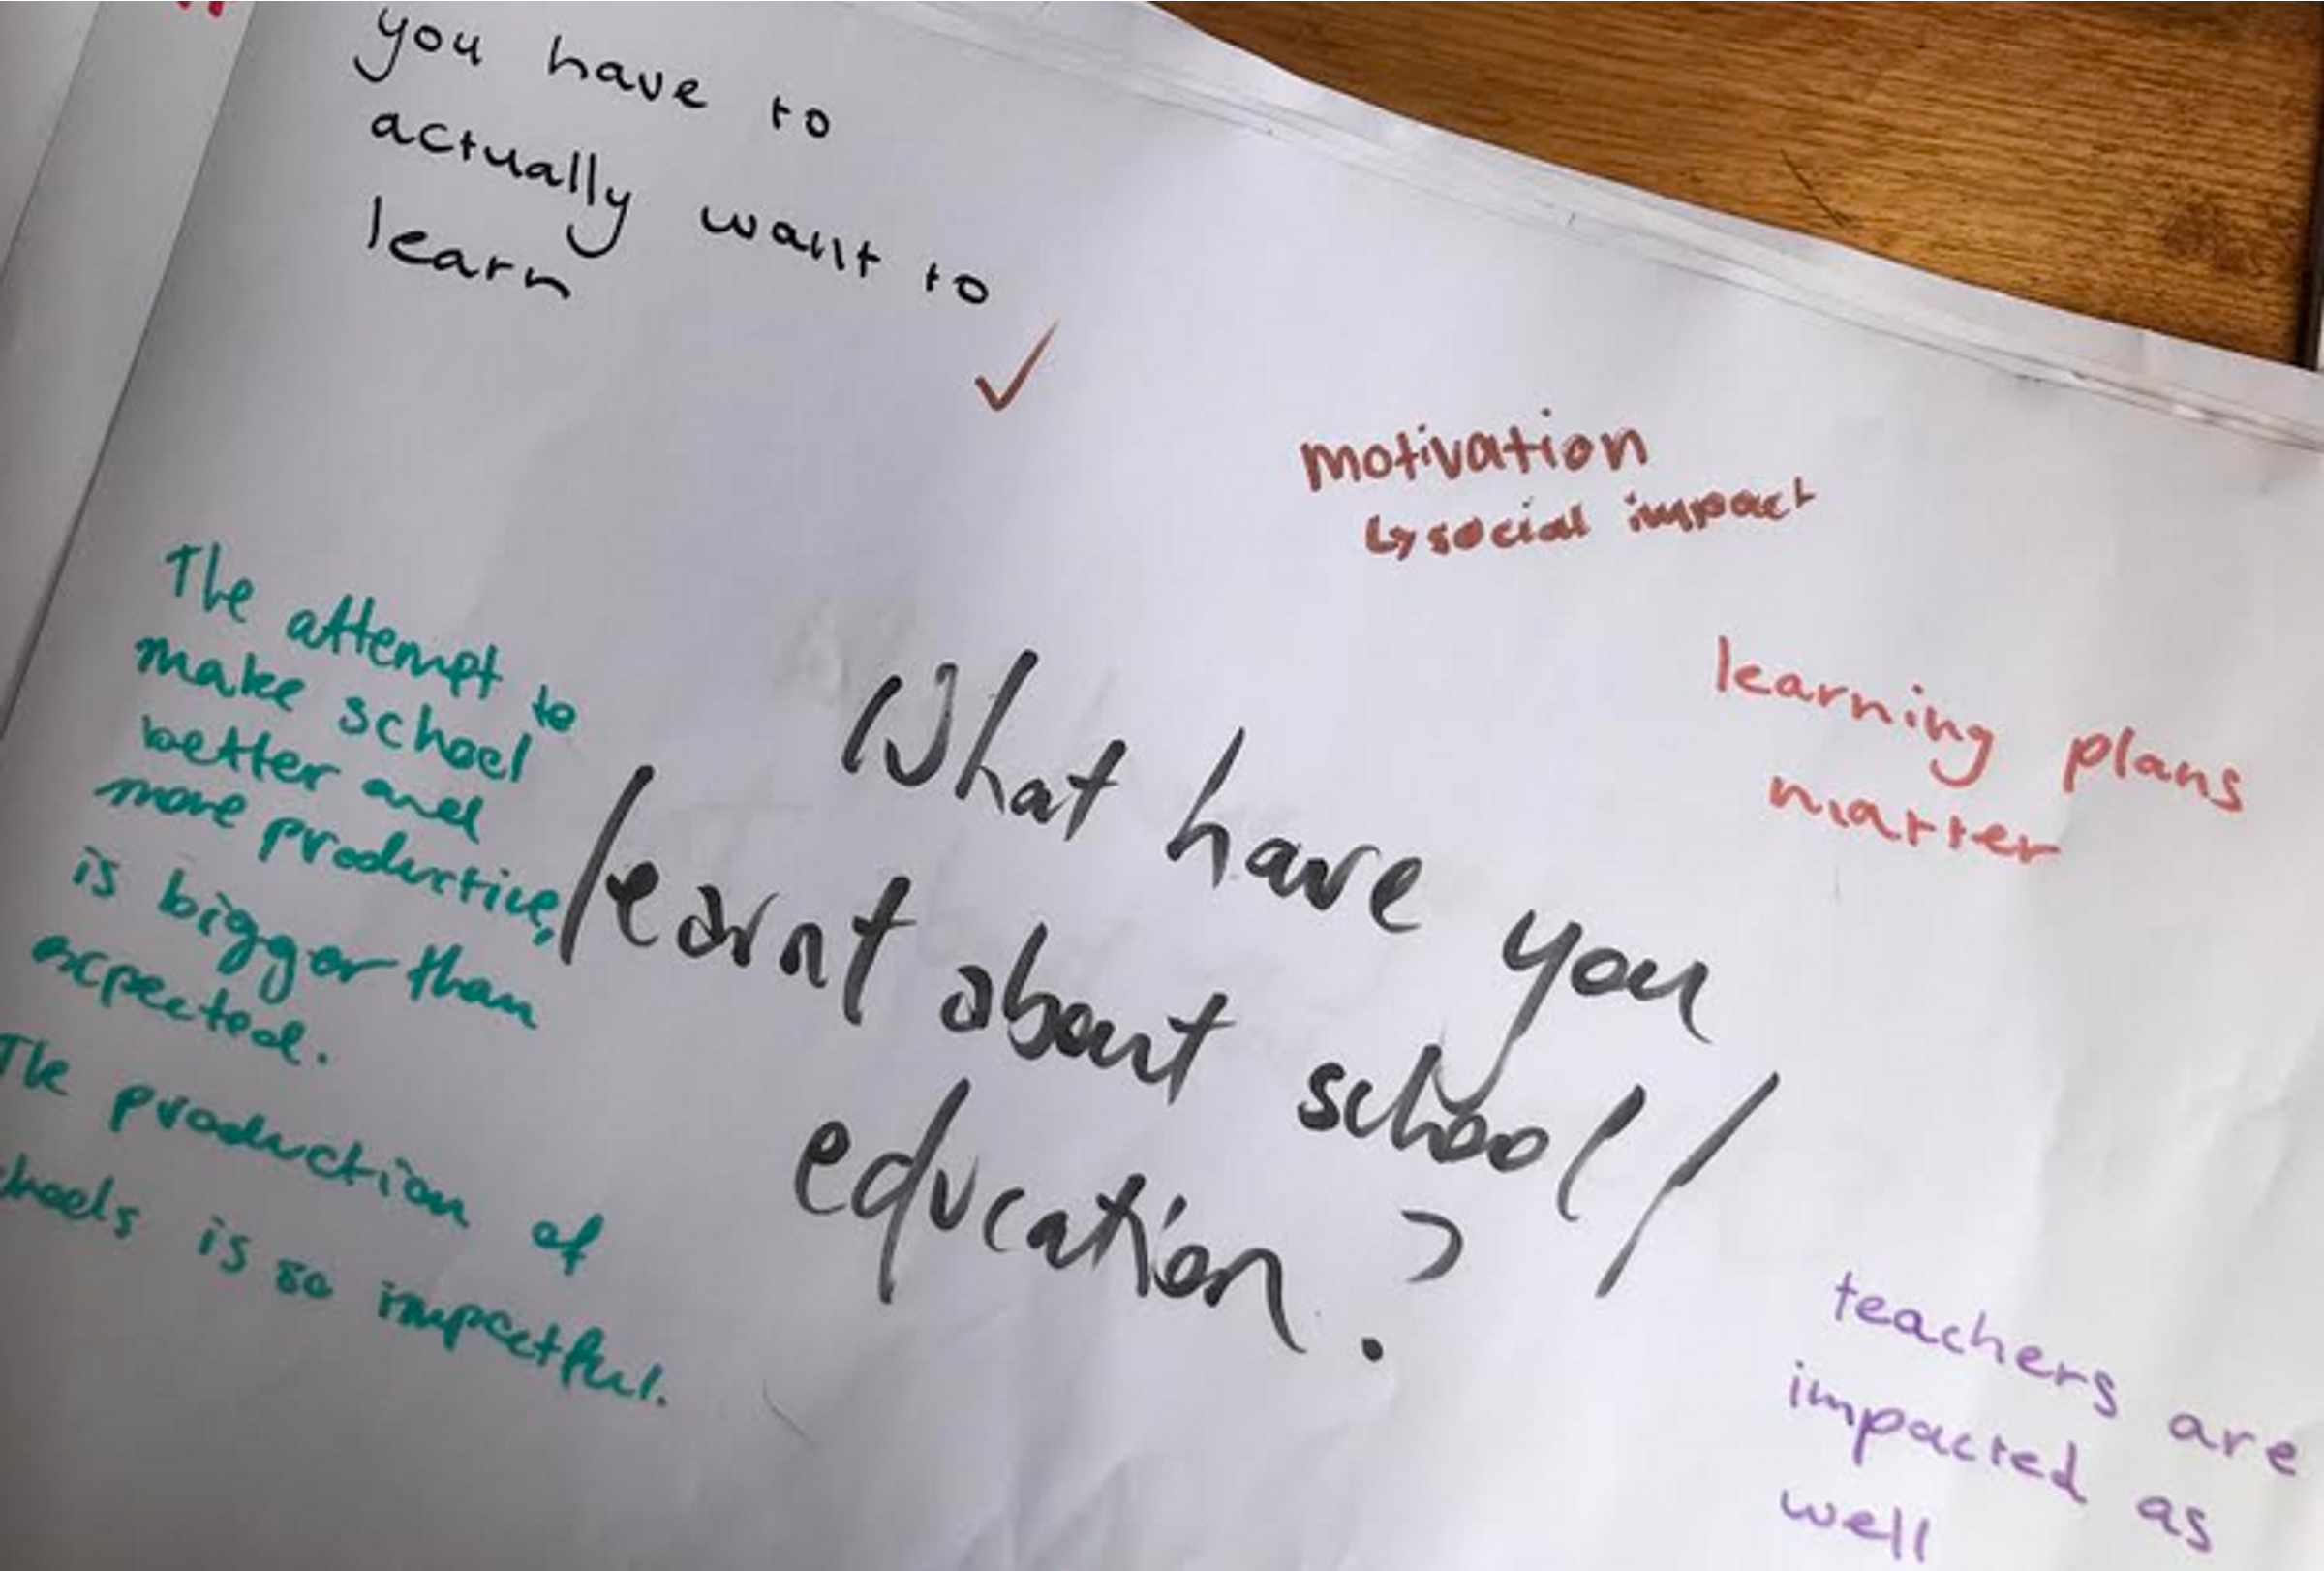 you have to
actually want to
learn
✓
motivation
↳ social impact
learning plans
matter
The attempt to
make school
better and
more productive,
is bigger than
expected.
The production of
is so impactful.
What have you
learnt about school/
education?
teachers are
impacted as
well